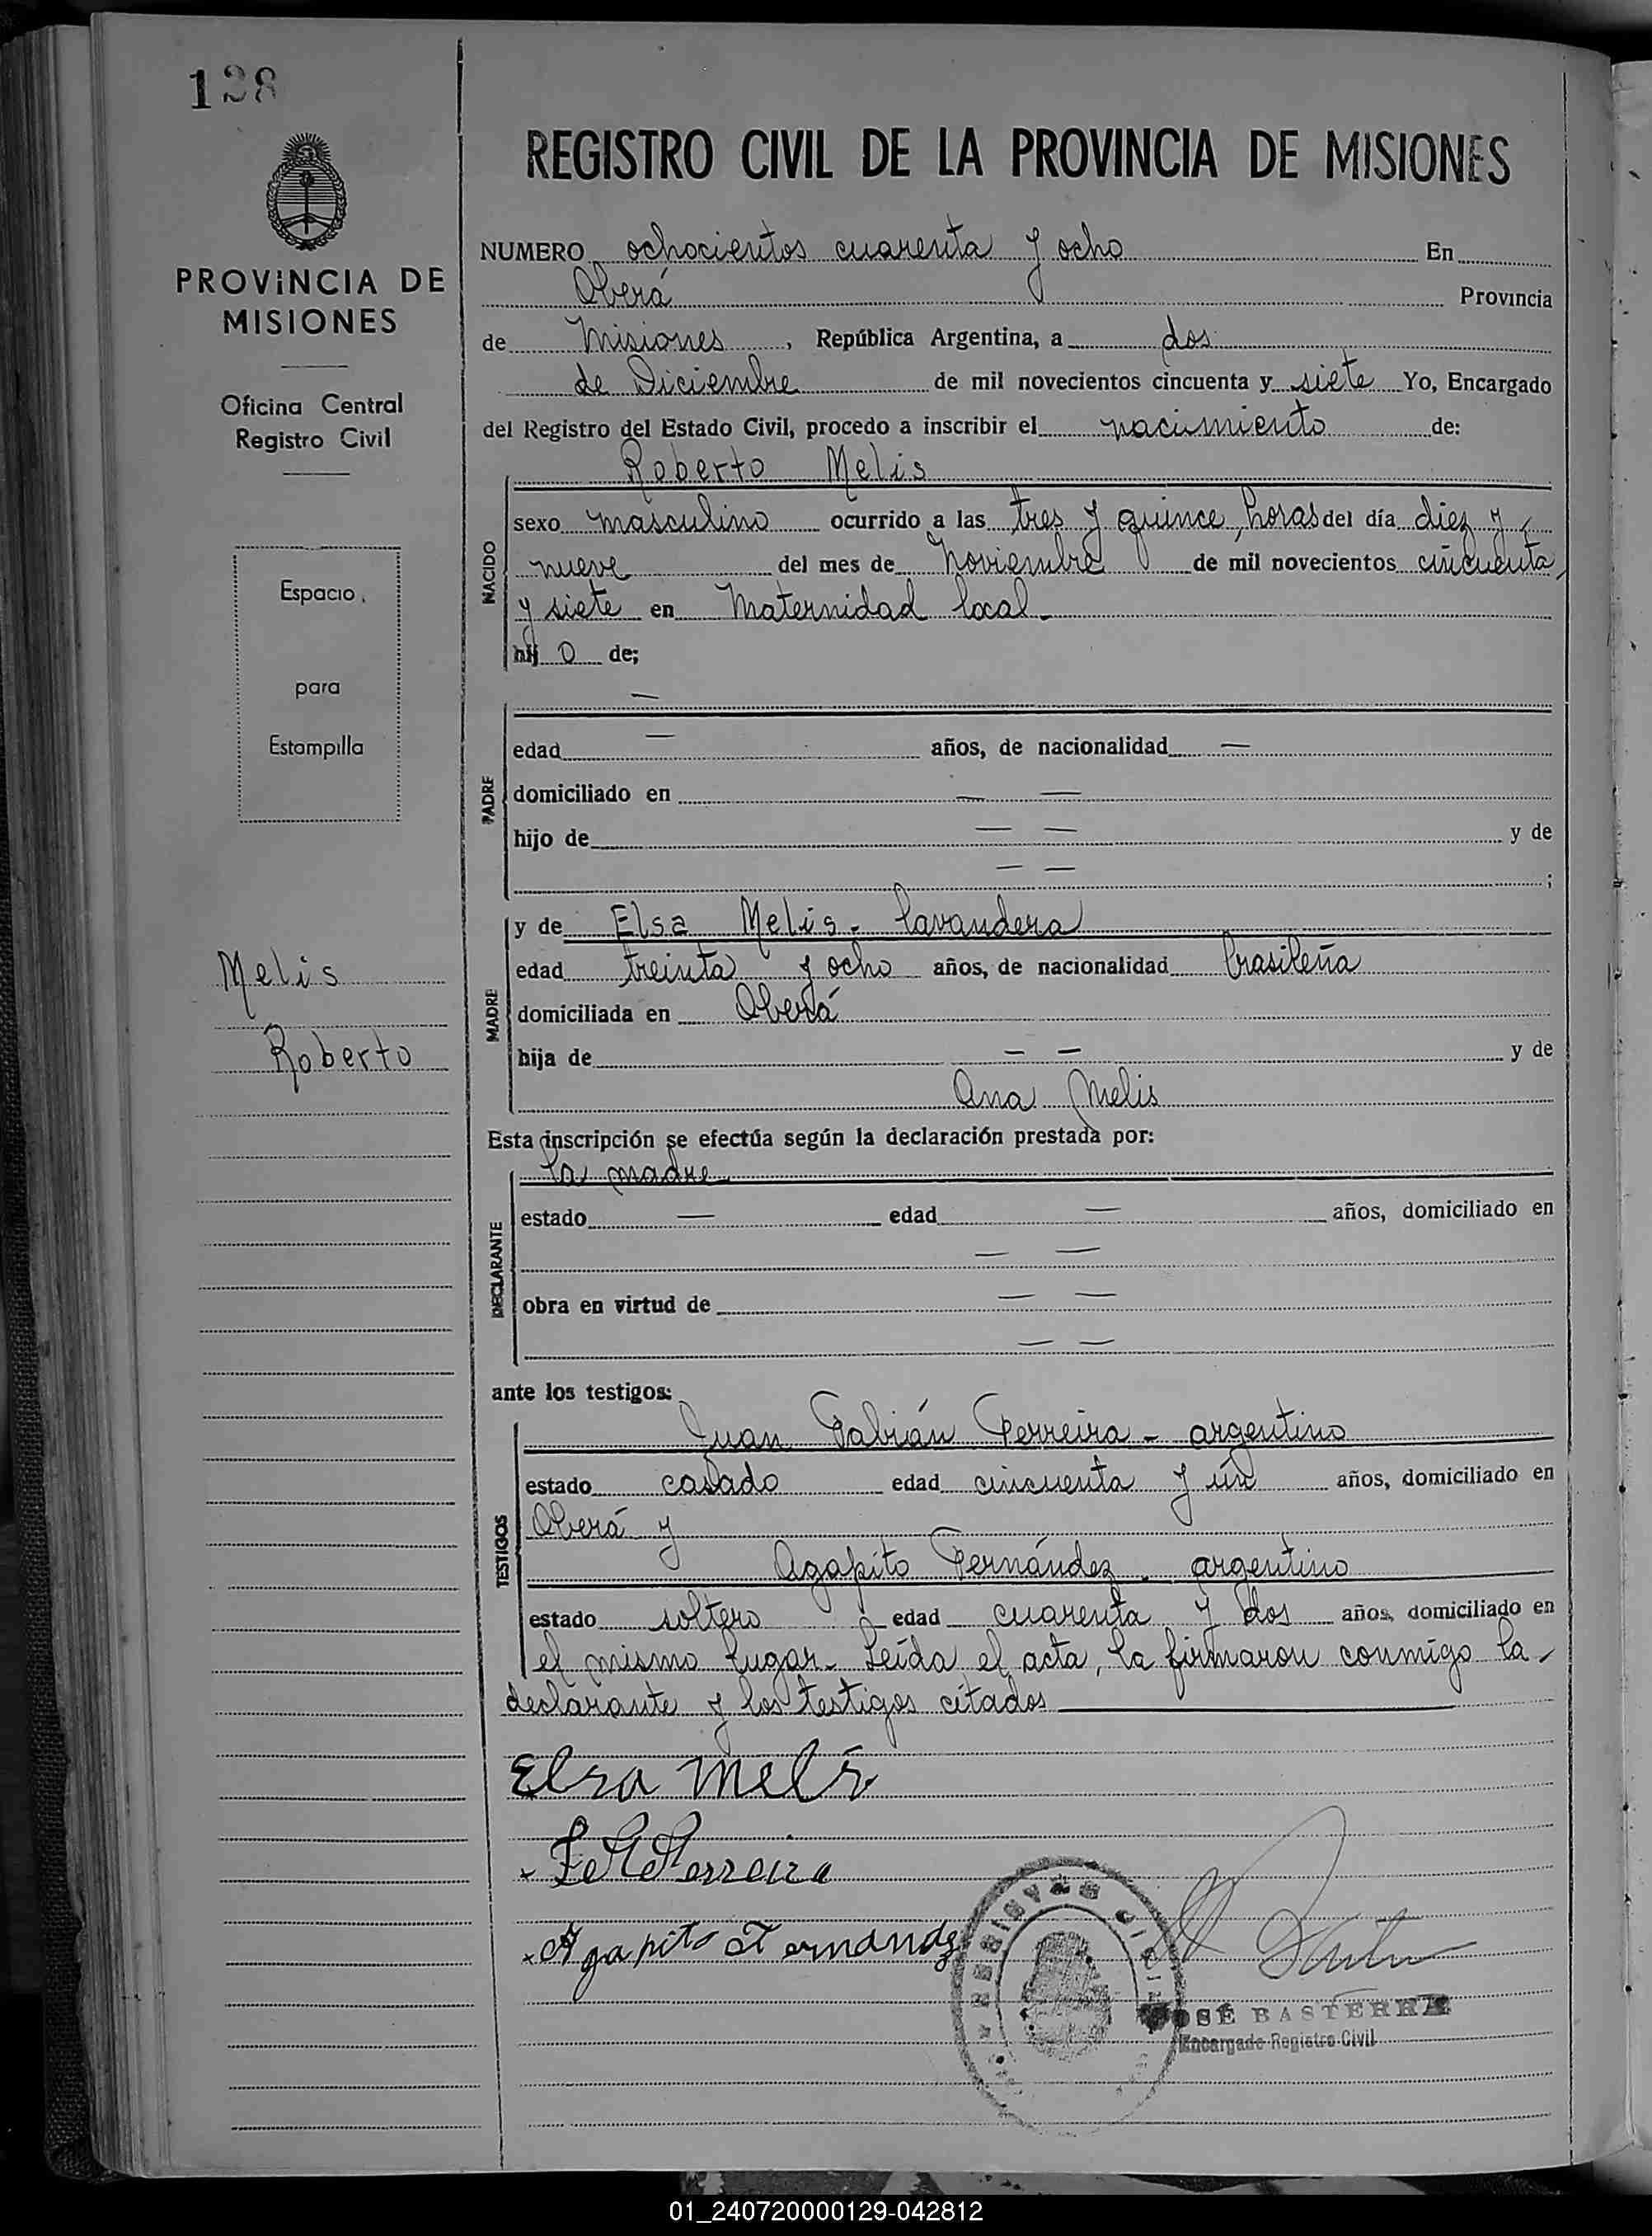 128
PROVINCIA DE
MISIONES
Oficina Central
Registro Civil
Espacio
para
Estampilla
Melis
Roberto
REGISTRO CIVIL DE LA PROVINCIA DE MISIONES
NUMERO ochocientos cuarenta y ocho En
Oberá Provincia
de Misiones, República Argentina, a dos
de Diciembre de mil novecientos cincuenta y siete Yo, Encargado
del Registro del Estado Civil, procedo a inscribir el nacimiento de:
Roberto Melis
NACIDO
sexo masculino ocurrido a las tres y quince horas del día diez y
nueve del mes de Noviembre de mil novecientos cincuenta
y siete en Maternidad local.
hij o de;
—
PADRE
edad — años, de nacionalidad —
domiciliado en — —
hijo de — — y de
— — ;
MADRE
y de Elsa Melis - lavandera
edad treinta y ocho años, de nacionalidad brasileña
domiciliada en Oberá
hija de — — y de
Ana Melis
Esta inscripción se efectúa según la declaración prestada por:
la madre
DECLARANTE
estado — edad — años, domiciliado en
— —
obra en virtud de — —
— —
ante los testigos:
Juan Fabián Ferreira - argentino
TESTIGOS
estado casado edad cincuenta y un años, domiciliado en
Oberá y
Agapito Fernández - argentino
estado soltero edad cuarenta y dos años, domiciliado en
el mismo lugar. Leída el acta, la firmaron conmigo la
declarante y los testigos citados
Elsa Melis
Ferreira
Agapito Fernandez
REGISTRO CIVIL
JOSÉ BASTERRA
Encargado Registro Civil
01_240720000129-042812